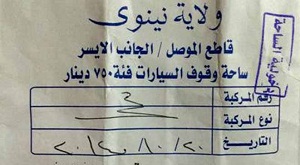 ولاية نينوى
قاطع الموصل / الجانب الايسر
ساحة وقوف السيارات فئة ٧٥٠ دينار
رقم المركبة
نوع المركبة
التاريخ
الساحة